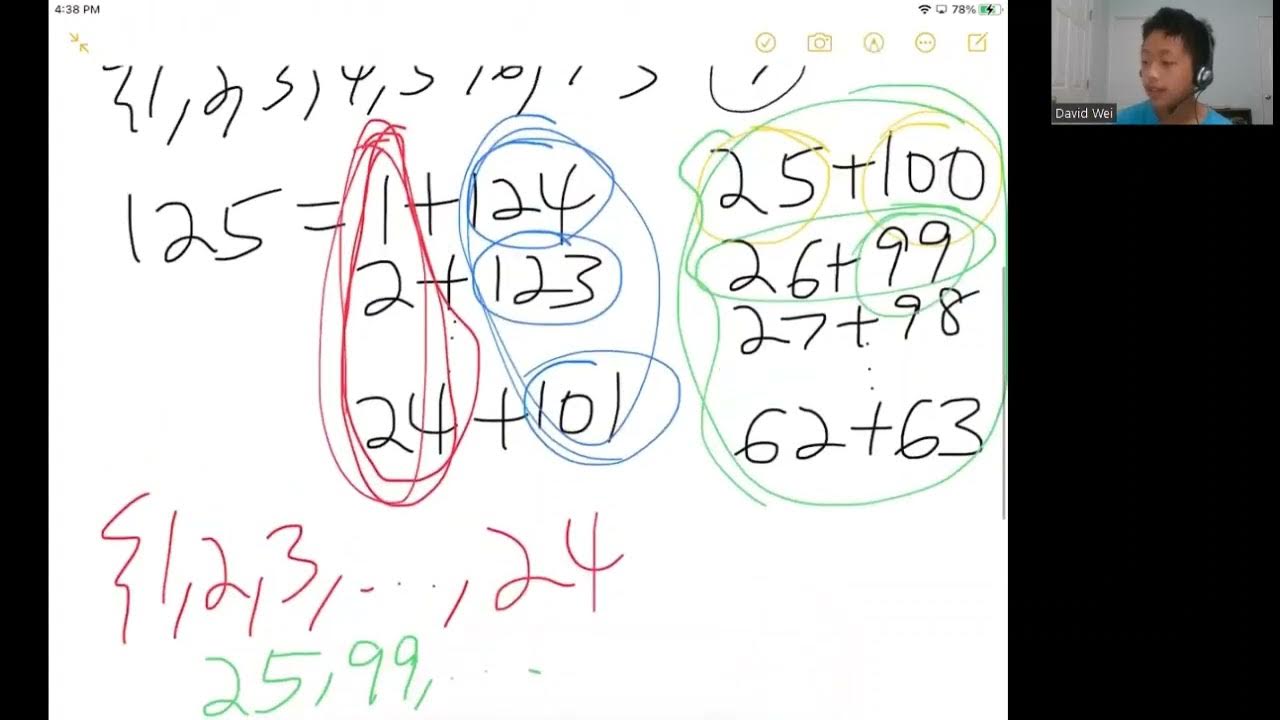 4:38 PM 78%
{1, 2, 3, 4, 5
125 = 1 + 124
2 + 123
24 + 101
25 + 100
26 + 99
27 + 98
62 + 63
{1, 2, 3, ..., 24
25, 99, ...
David Wei